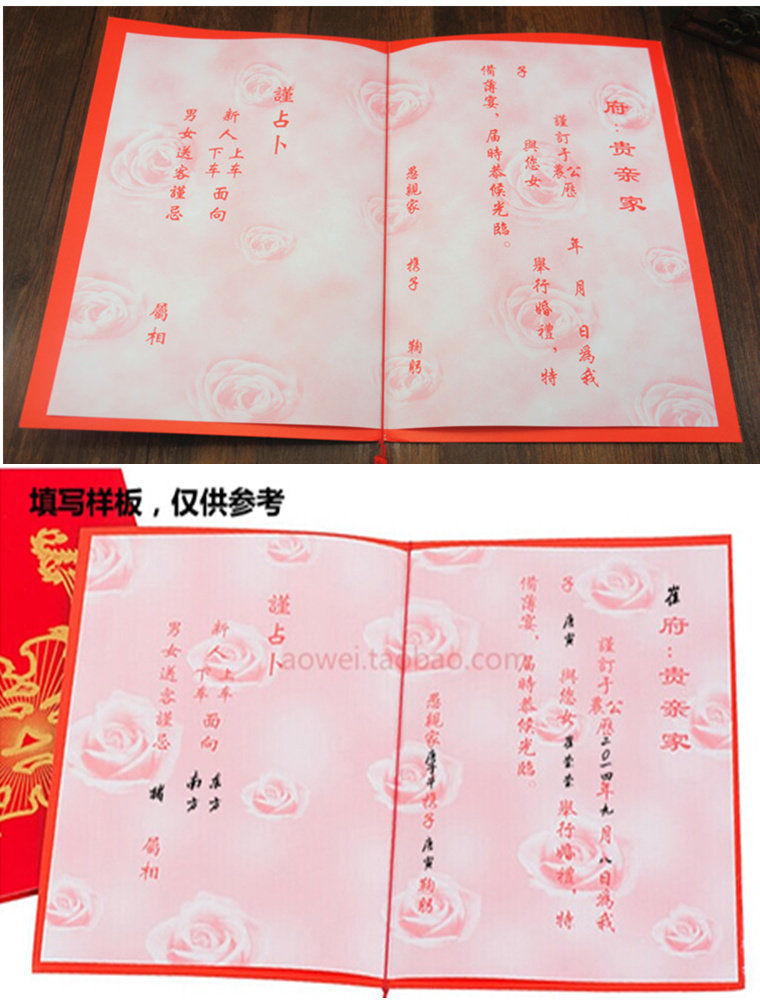 府：贵亲家
謹訂于公農歷 年 月 日爲我
子 與您女 舉行婚禮，特
備薄宴、届時恭候光臨。
愚親家 携子 鞠躬
謹占卜
新人上車下車面向
男女送客謹忌 屬相
填写样板，仅供参考
崔府：贵亲家
謹訂于公農歷二〇一四年九月八日爲我
子唐寅與您女崔莹莹舉行婚禮，特
備薄宴、届時恭候光臨。
愚親家 携子唐寅鞠躬
謹占卜
新人上車下車面向东方南方
男女送客謹忌猪屬相
aowei.taobao.com